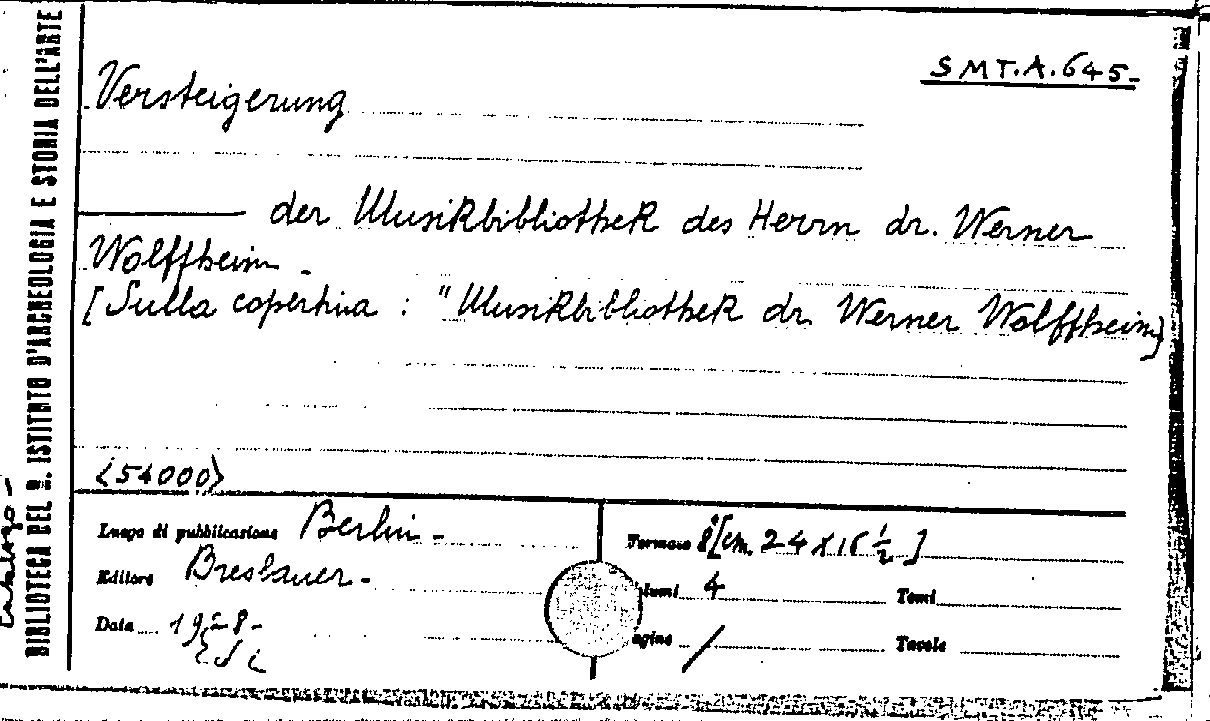 SMT.A.645-
Versteigerung
der Musikbibliothek des Herrn dr. Werner
Wolffheim -
[Sulla copertina : "Musikbibliothek dr. Werner Wolffheim]
<54000>
Luogo di pubblicazione Berlin -
Editore Breslauer -
Data 1928-
Formato 8°[cm. 24 x 16 ½]
lumi 4 Tomi
agine / Tavole
BIBLIOTECA DEL R. ISTITUTO D'ARCHEOLOGIA E STORIA DELL'ARTE
Catalogo -